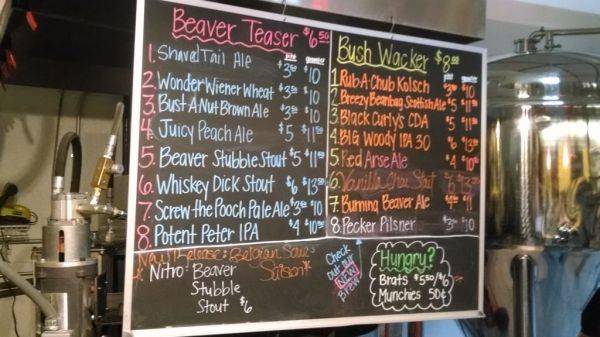 Beaver Teaser $6.50
1. Shaved Tail Ale $3.50 $10
2. Wonder Wiener Wheat $3.50 $10
3. Bust-A-Nut Brown Ale $3.50 $10
4. Juicy Peach Ale $5 $11.50
5. Beaver Stubble Stout $5 $11.50
6. Whiskey Dick Stout $6 $12.50
7. Screw the Pooch Pale Ale $3.50 $10
8. Potent Peter IPA $4 $10.50
New Release: Belgian Saus
Saison*
Nitro: Beaver
Stubble
Stout $6
Bush Wacker $8.00
pint growler
1. Rub-A-Chub Kolsch $3.50 $10
2. Breezy Beanbag Scottish Ale $5 $11.50
3. Black Curly's CDA $5 $11.50
4. BIG Woody IPA 30 $6 $13.50
5. Red Arse Ale $4 $10.50
6. Vanilla Chai Stout $6 $13.50
7. Burning Beaver Ale $11
8. Pecker Pilsner $3.50 $10
Check
out our
NEW
Brew
Hungry?
Brats $5.50/$6
Munchies 50¢